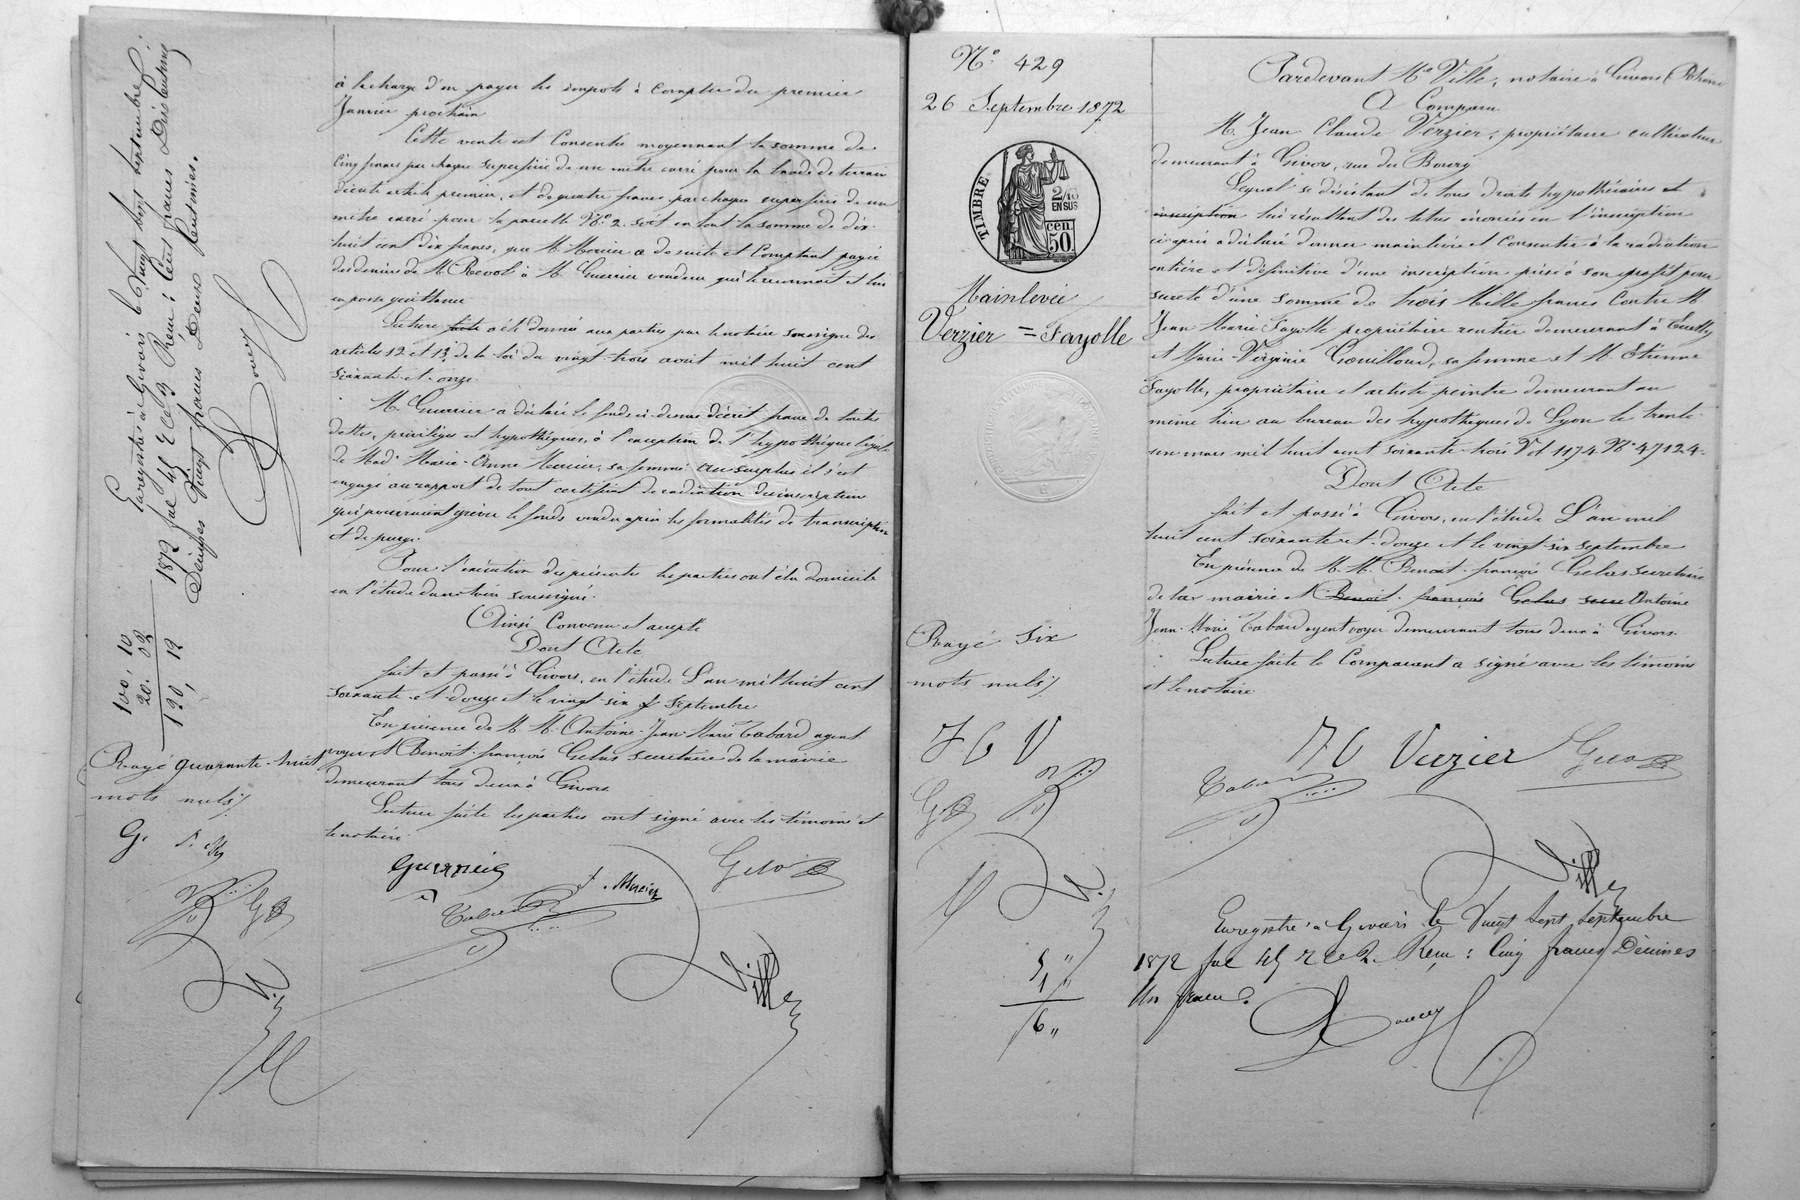 à la charge d'en payer les impots à compter du premier
Janvier prochain
Cette vente est Consentie moyennant la somme de
Cinq francs par chaque superficie de un mètre carré pour la bande de terrain
décrite article premier, et de quatre francs par chaque superficie de un
mètre carré pour la parcelle N° 2. soit en tout la somme de dix
huit cent dix francs, que M. Mercier a de suite et Comptant payée
des deniers de M. Revol à M. Guerrier vendeur qui le reconnait et lui
en passe quittance
Lecture faite a été donnée aux parties par le notaire soussigné des
articles 12 et 13 de la loi du vingt-trois août mil huit cent
soixante-et-onze.
M. Guerrier a déclaré le fonds ci-dessus décrit franc de toutes
dettes, privilèges et hypothèques, à l'exception de l'hypothèque légale
de Mad. Marie-Anne Mercier, sa femme au surplus il s'est
engagé au rapport de tout certificat de radiation des inscriptions
qui pourraient grever le fonds vendu après les formalités de transcription
et de purge.
Pour l'exécution des présentes les parties ont élu domicile
en l'étude du notaire soussigné.
Ainsi Convenu et accepté
Dont Acte
fait et passé à Givors, en l'étude L'an mil huit cent
soixante-et-douze et le vingt-six septembre
En présence de M. M. Antoine-Jean-Marie Tabard agent
voyer et Benoit-françois Gelas secrétaire de la mairie
demeurant tous deux à Givors
Lecture faite les parties ont signé avec les témoins et
le notaire.
Guerrier
J. Mercier
Gelas
Tabard
Ville
Enregistré à Givors le Vingt Sept Septembre
1872 fol 45 R Ce 9 Reçu : Cent francs Dix centimes
Décimes Vingt francs Deux Centimes.
100, 10
20. 02
120, 12
Rayé quarante-huit
mots nuls
G.
N° 429
26 Septembre 1872
TIMBRE
2/10
EN SUS
cen.
50.
Mainlevée
Verzier = Fayolle
Rayé six
mots nuls
J C V
5 "
1 "
6 "
Pardevant Me Ville, notaire à Givors (Rhône
A Comparu
M. Jean Claude Verzier, propriétaire cultivateur
demeurant à Givors, rue du Bourg
Lequel se désistant de tous droits hypothécaires et
inscription lui résultant des titres énoncés en l'inscription
ci-après a déclaré donner mainlevée et Consentir à la radiation
entière et définitive d'une inscription prise à son profit pour
sureté d'une somme de trois Mille francs Contre M.
Jean Marie Fayolle propriétaire rentier demeurant à
et Marie-Virginie Gouilloud, sa femme et M. Etienne
Fayolle, propriétaire et artiste peintre demeurant au
même lieu au bureau des hypothèques de Lyon le trente-
un mars mil huit cent soixante-trois Vol 1174 N° 47124.
Dont Acte
fait et passé à Givors, en l'étude L'an mil
huit cent soixante-et-douze et le vingt-six septembre
En présence de M. M. Benoit-françois Gelas secrétaire
de la mairie et Benoit-françois Gelas secre Antoine
Jean-Marie Tabard agent voyer demeurant tous deux à Givors.
Lecture faite le Comparant a signé avec les témoins
et le notaire
J C Verzier
Gelas
Tabard
Ville
Enregistré à Givors le Vingt Sept Septembre
1872 fol 45 R Ce 2. Reçu : Cinq francs Décimes
Un franc.